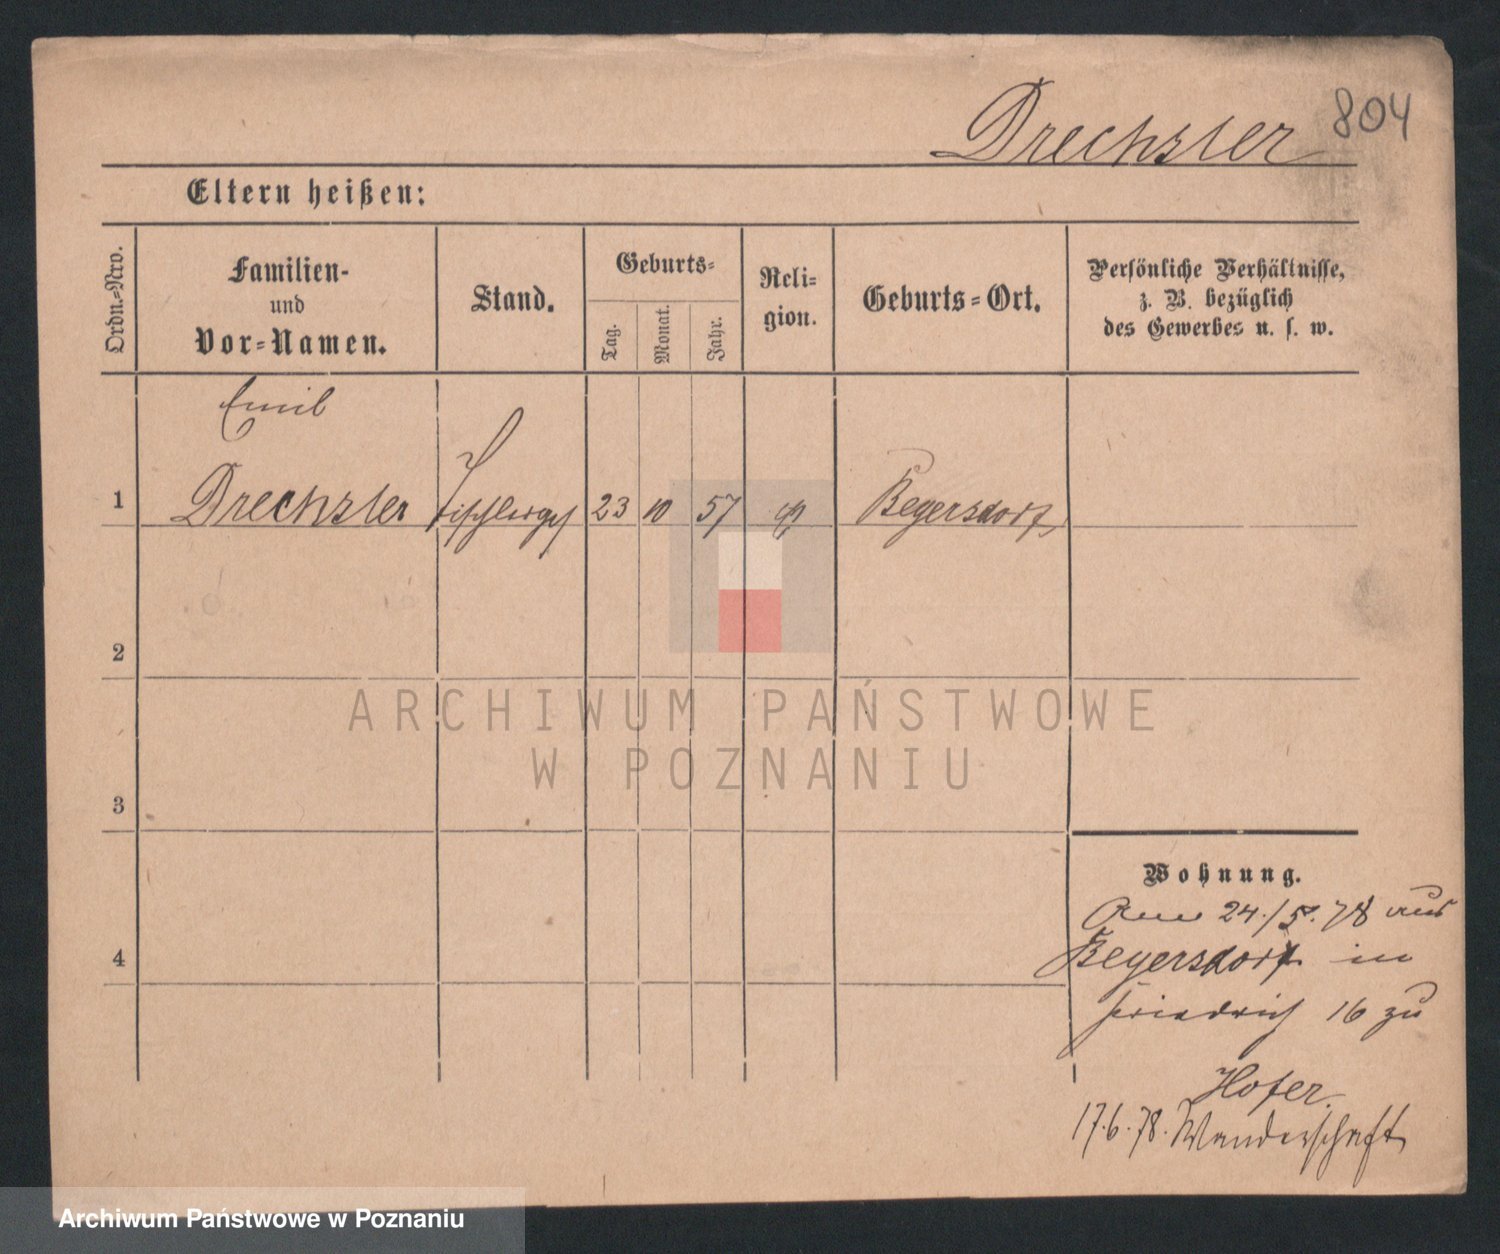 Drechsler 804
Eltern heißen:
Ordn.=Nro.
Familien-
und
Vor=Namen.
Stand.
Geburts=
Tag.
Monat.
Jahr.
Reli=
gion.
Geburts=Ort.
Persönliche Verhältnisse,
z. B. bezüglich
des Gewerbes u. s. w.
Emil
1 Drechsler Tischlerges 23 10 57 Beyersdorf
2
3
4
Wohnung.
24./5. 78 aus
Beyersdorf in
Friedrich 16 zu
Hofer.
17.6.78. Wanderschaft
ARCHIWUM PAŃSTWOWE
W POZNANIU
Archiwum Państwowe w Poznaniu